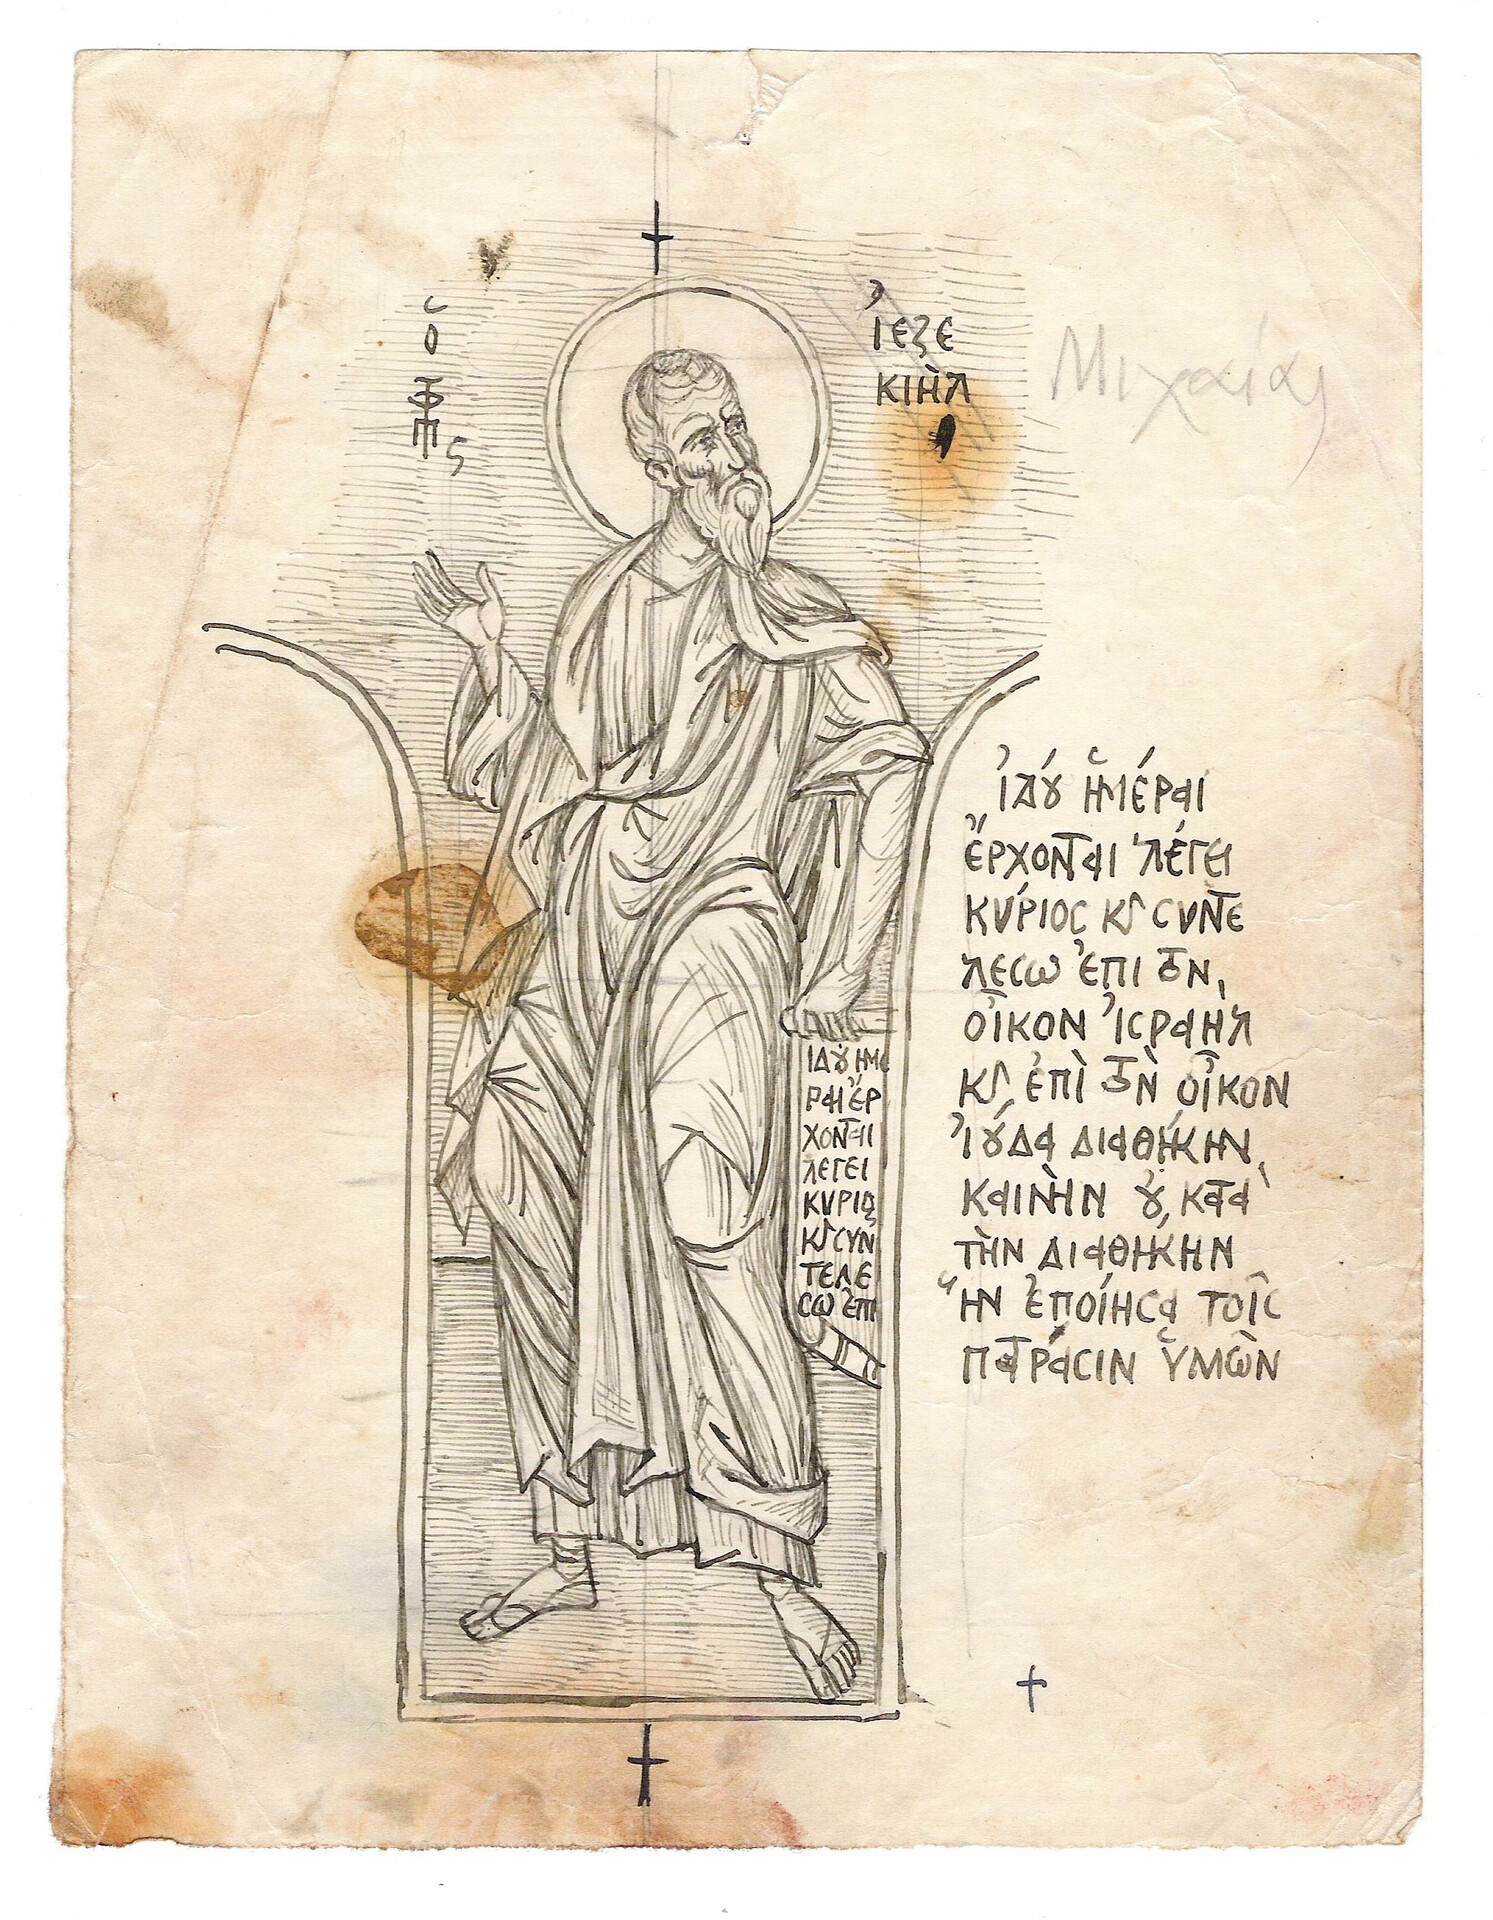 ὁ
ΠΦΤς
ἸΕΖΕ
ΚΙῊΛ
Μιχαίας
ἸΔΟῪ ἩΜΈΡΑΙ
ἜΡΧΟΝΤΑΙ ΛΈΓΕΙ
ΚΎΡΙΟC Κϛ CΥΝΤΕ
ΛΕCΩ ἘΠΙ ΤΟΝ
ΟἾΚΟΝ ἸCΡΑΗΛ
Κϛ ἘΠῚ ΤῸΝ ΟἾΚΟΝ
ἸΟΎΔΑ ΔΙΑΘΉΚΗΝ
ΚΑΙΝῊΝ ΟΥ̓ ΚΑΤᾺ
ΤῊΝ ΔΙΑΘΉΚΗΝ
ἭΝ ἘΠΟΊΗCΑ ΤΟῖC
ΠΑΤΡΆCΙΝ ὙΜῶΝ
ΙΔΟΎ ΗΜΕ
ΡΑΙ ἜΡ
ΧΟΝΤΑΙ
ΛΕΓΕΙ
ΚΥΡΙΟς
Κϛ CΥΝ
ΤΕΛΕ
CΩ ἘΠΙ